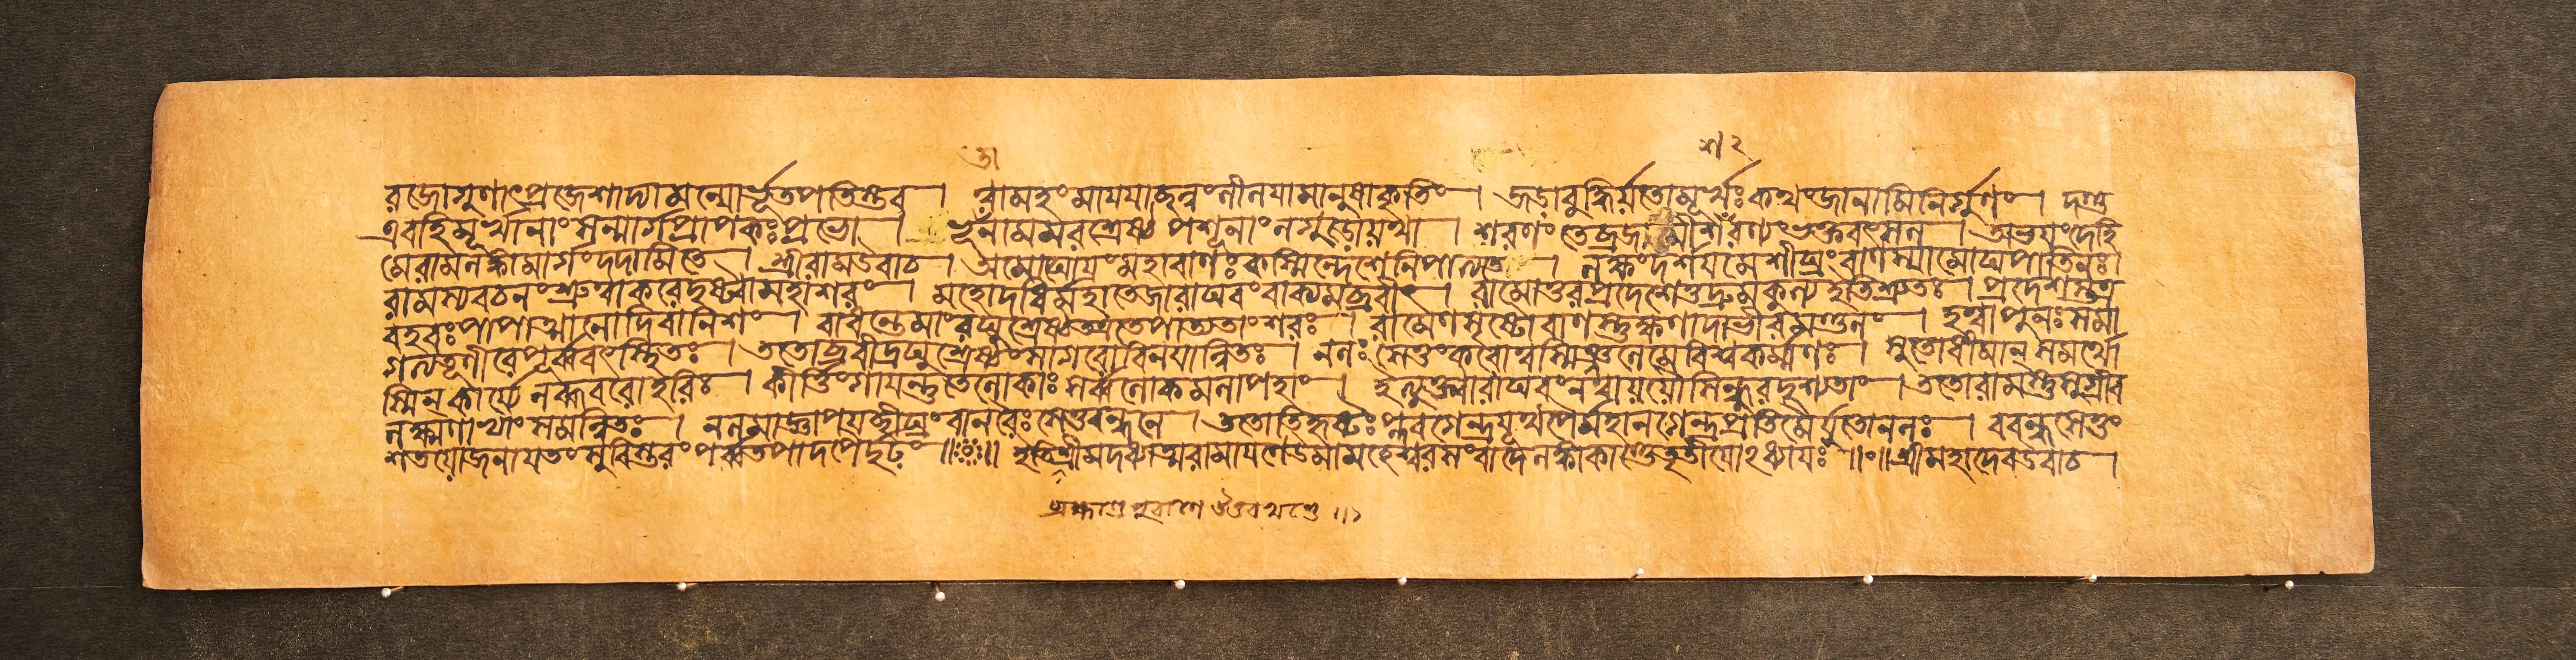 রজোগুণাৎপ্রজেশাদ্যামন্যোর্ভূতপতিস্তব। ত্বামহংমায়যাছন্নংলীলযামানুষাকৃতিং। জড়বুদ্ধির্য়তোমূর্খঃকথংজানামিনির্গুণং। দণ্ড
এবহিমূর্খানাংসন্মার্গপ্রাপকঃপ্রভো। ভূতানামমরশ্রেষ্ঠপশূনাংলগুড়োয়থা। শরণংতেব্রজামীশংশরণ্যংভক্তবৎসল। অভয়ংদেহি
মেরামলঙ্কামার্গংদদামিতে। শ্রীরামউবাচ। অমোঘোয়ংমহাবাণঃকস্মিন্দেশেনিপাত্যতাং। লক্ষ্যংদর্শয়মেশীঘ্রংবাণস্যামোঘপাতিনঃ।
রামস্যবচনংশ্রুত্বাকরেদৃষ্ট্বামহাশরং। মহোদধির্মহাতেজারাঘবংবাক্যমব্রবীৎ। রামোত্তরপ্রদেশেতুদ্রুমকুল্যইতিশ্রুতঃ। প্রদেশস্তত্র
বহবঃপাপাত্মানোদিবানিশং। বাধন্তেমাংরঘুশ্রেষ্ঠতত্রতেপাত্যতাংশরঃ। রামেণসৃষ্টোবাণস্তুক্ষণাদাভীরমণ্ডলং। হত্বাপুনঃসমা
গত্যতূণীরেপূর্ব্ববৎস্থিতঃ। ততোব্রবীদ্রঘুশ্রেষ্ঠংসাগরোবিনয়ান্বিতঃ। নলঃসেতুংকরোত্বস্মিঞ্জলেমেবিশ্বকর্ম্মণঃ। সুতোধীমান্সমর্থো
স্মিন্কার্য্যেলব্ধবরোহরিঃ। কীর্ত্তিংগায়ন্তুতেলোকাঃসর্ব্বলোকমলাপহাং। ইত্যুক্ত্বারাঘবংনত্বায়য়ৌসিন্ধুরদৃশ্যতাং। ততোরামস্তুসুগ্রীব
লক্ষ্মণাভ্যাংসমন্বিতঃ। নলমাজ্ঞাপয়চ্ছীঘ্রংবানরৈঃসেতুবন্ধনে। ততোতিহৃষ্টঃপ্লবগেন্দ্রয়ূথপৈর্মহানগেন্দ্রপ্রতিমৈর্য়ুতোনলঃ। ববন্ধসেতুং
শতয়োজনায়তংসুবিস্তরংপর্ব্বতপাদপৈর্দৃঢ়ং॥ ইতিশ্রীমদধ্যাত্মরামায়ণেউমামহেশ্বরসংবাদেলঙ্কাকাণ্ডেতৃতীয়োঽধ্যায়ঃ॥০॥শ্রীমহাদেবউবাচ।
ব্রহ্মাণ্ডেপুরাণেউত্তরখণ্ডে॥